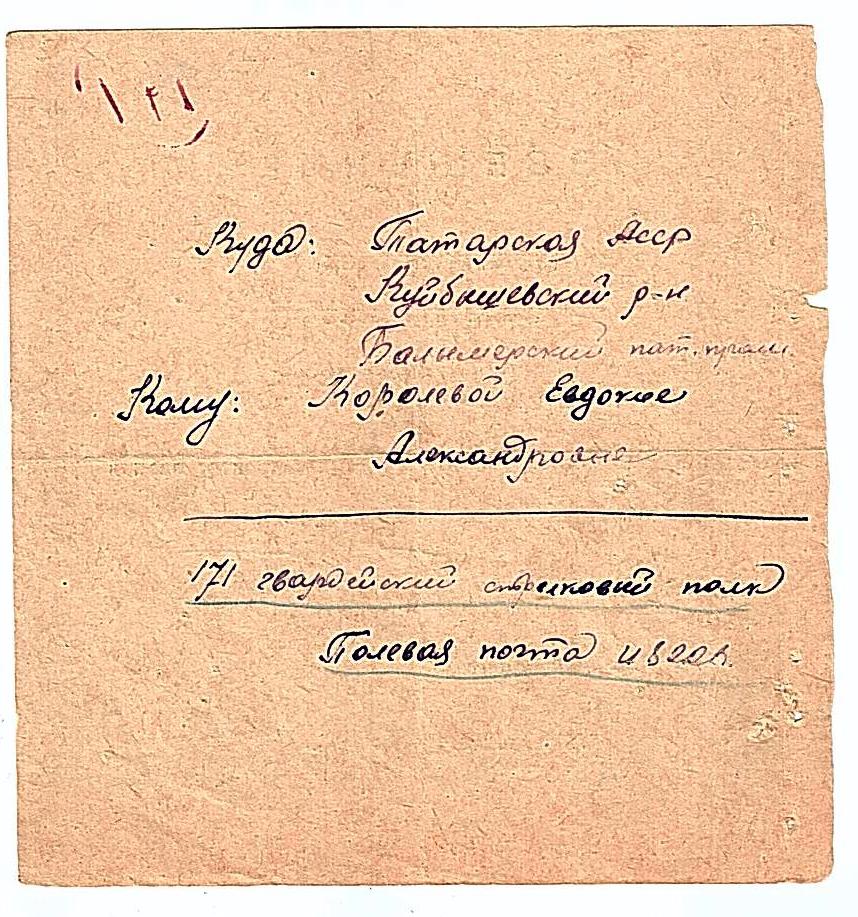 Куда: Татарская Асср
Куйбышевский р-н
Балымерский пат.
Кому: Королевой Евдокие
Александровне
171 гвардейский стрелковий полк
Полевая почта